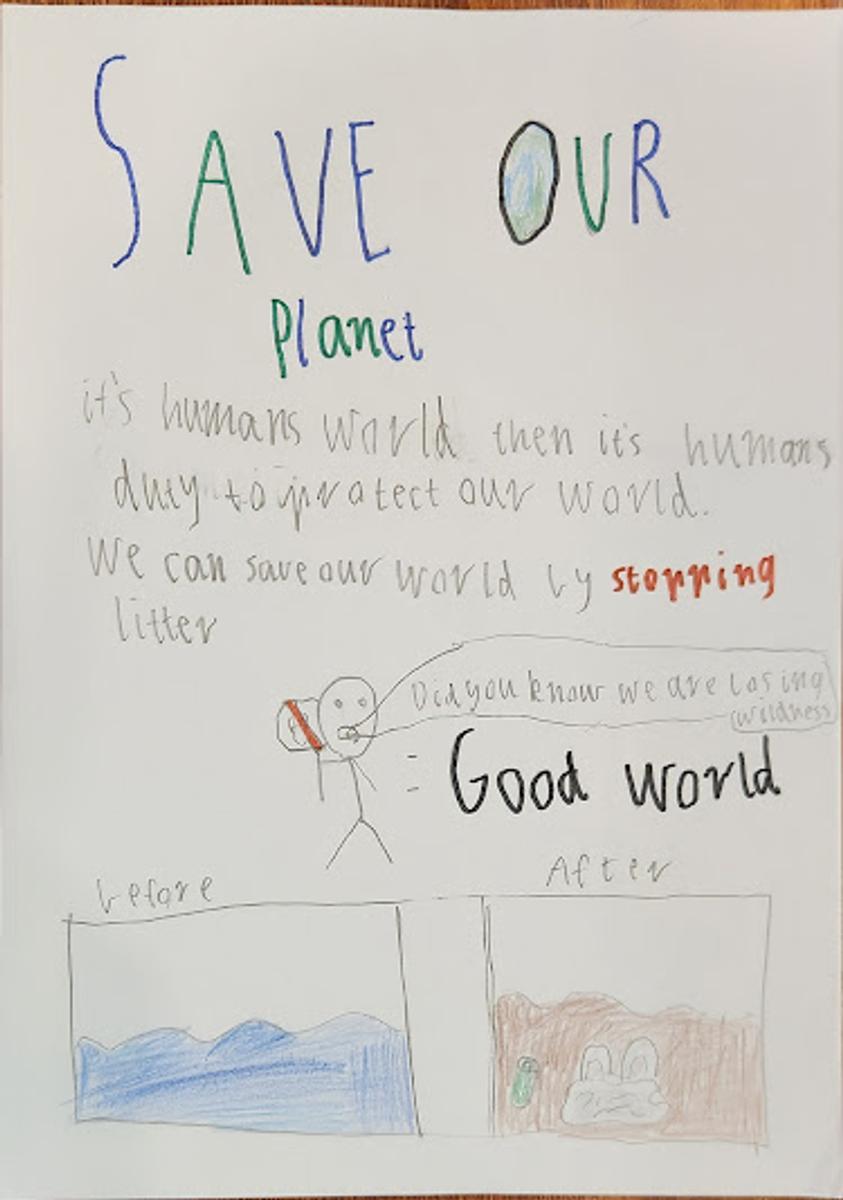 SAVE OUR
Planet
it's humans world then it's humans
duty to protect our world.
We can save our world by stopping
litter
Did you know we are losing
wildness
Good world
before
After